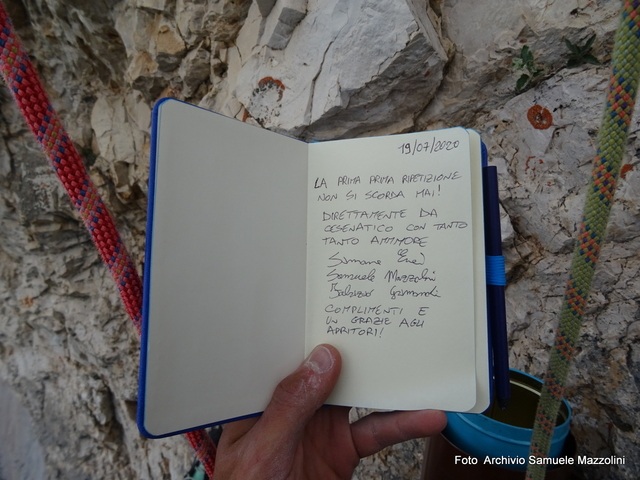 19/07/2020
LA PRIMA PRIMA RIPETIZIONE
NON SI SCORDA MAI!
DIRETTAMENTE DA
CESENATICO CON TANTO
TANTO AMMORE
Simone
Samuele Mazzolini
COMPLIMENTI E
UN GRAZIE AGLI
APRITORI!
Foto Archivio Samuele Mazzolini